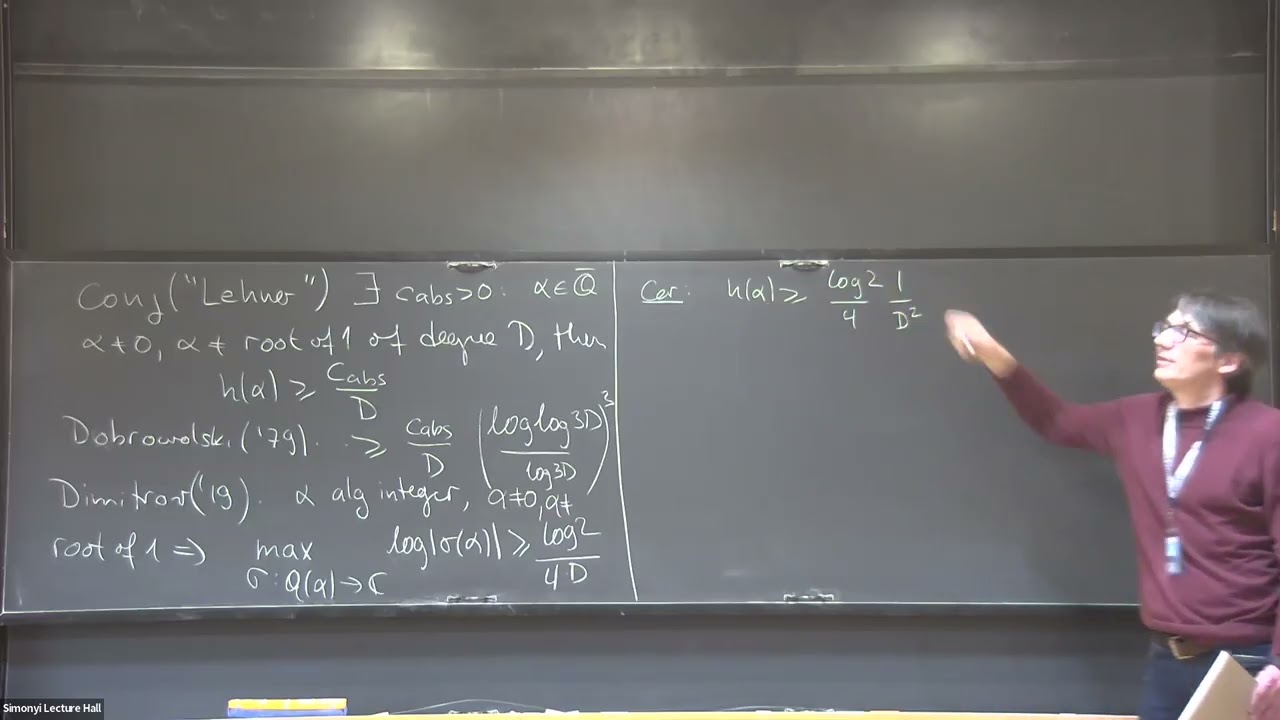 Conj ("Lehmer") ∃ c_abs > 0 : α ∈ Q̄
α ≠ 0, α ≠ root of 1 of degree D, then
h(α) ≥ c_abs / D
Dobrowolski ('79). ≥ c_abs / D (loglog3D / log3D)^3
Dimitrov ('19). α alg integer, α≠0, α≠
root of 1 ⇒ max_{σ: Q(α)→C} log|σ(α)| ≥ log2 / 4D
Cor: h(α) ≥ log2 / 4 1 / D^2
Simonyi Lecture Hall